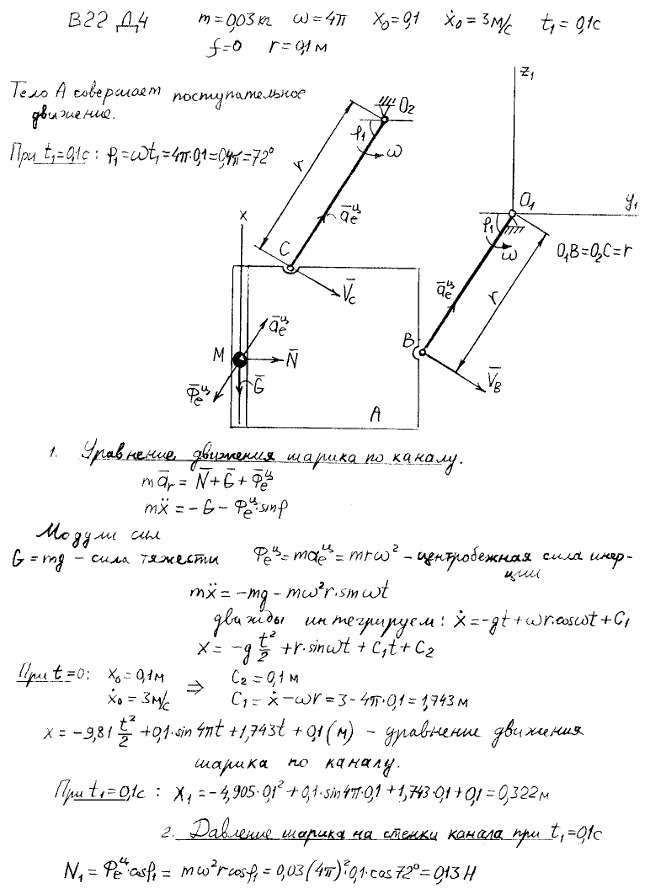 В22 Д4 m=0,03 кг ω=4π x₀=0,1 ẋ₀=3м/с t₁=0,1с
f=0 r=0,1м
Тело A совершает поступательное
движение.
При t₁=0,1с: φ₁=ωt₁=4π·0,1=0,4π=72°
z₁
O₂
φ₁
ω
r
a̅ₑᶣ
O₁
y₁
x
C
V̅_C
φ₁
ω
O₁B=O₂C=r
a̅ₑᶣ
r
a̅ₑᶣ
M
N̅
B
Φ̅ₑᶣ
G̅
V̅_B
A
1. Уравнение движения шарика по каналу.
ma̅ᵣ = N̅+G̅+Φ̅ₑᶣ
mẍ = -G - Φₑᶣ·sinφ
Модули сил
G=mg - сила тяжести Φₑᶣ=maₑᶣ=mrω² - центробежная сила инер-
ции
mẍ = -mg - mω²r·sinωt
дважды интегрируем: ẋ=-gt+ωr·cosωt+C₁
x = -g t²/2 + r·sinωt + C₁t + C₂
При t=0: x₀=0,1м ⇒ C₂=0,1м
ẋ₀=3м/с C₁=ẋ-ωr=3-4π·0,1=1,743м
x = -9,81 t²/2 + 0,1·sin4πt + 1,743t + 0,1 (м) - уравнение движения
шарика по каналу.
При t₁=0,1с: x₁=-4,905·0,1²+0,1·sin4π·0,1+1,743·0,1+0,1=0,322м
2. Давление шарика на стенки канала при t₁=0,1с
N₁=Φₑᶣ·cosφ₁=mω²r cosφ₁=0,03(4π)²·0,1·cos72°=0,13Н